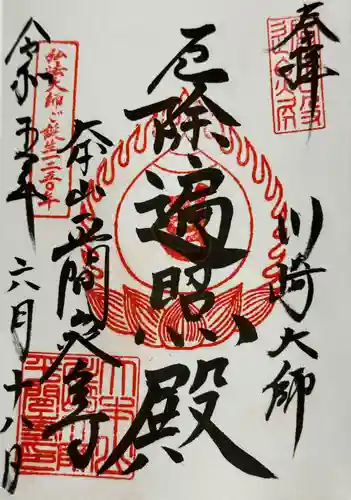 奉拝
川崎大師
厄除遍照殿
大本山平間寺
弘法大師ご誕生一二五〇年
令和五年
六月十八日